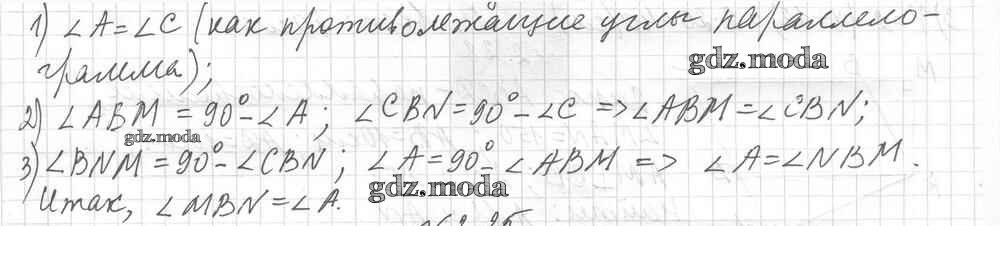 1) ∠A = ∠C (как противолежащие углы параллело-
грамма);
gdz.moda
2) ∠ABM = 90° - ∠A; ∠CBN = 90° - ∠C => ∠ABM = ∠CBN;
gdz.moda
3) ∠BNM = 90° - ∠CBN; ∠A = 90° - ∠ABM => ∠A = ∠NBM.
gdz.moda
Итак, ∠MBN = ∠A.